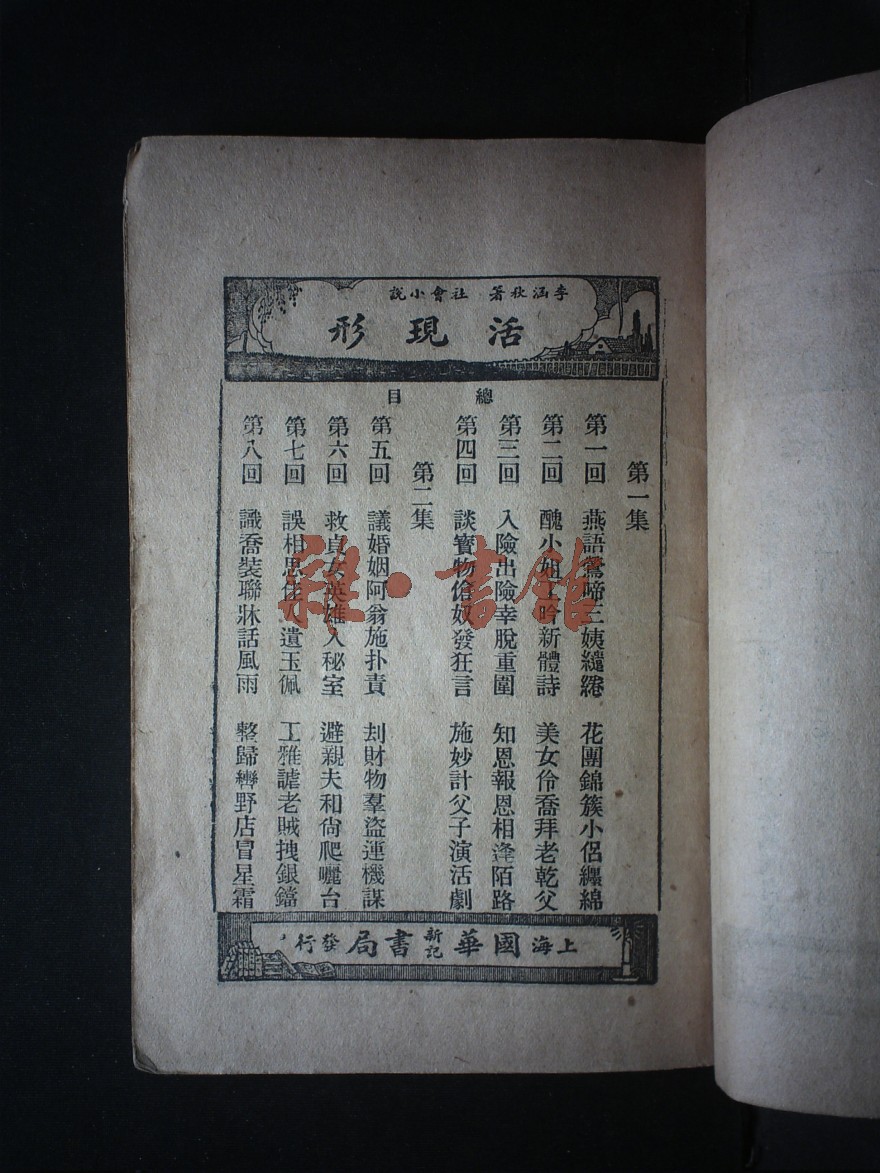 李涵秋著 社會小說
活現形
總目
第一集
第一回 燕語鶯啼三姨繾綣 花團錦簇小侶纏綿
第二回 醜小姐上吟新體詩 美女伶喬拜老乾父
第三回 入險出險幸脫重圍 知恩報恩相逢陌路
第四回 談寶物傖奴發狂言 施妙計父子演活劇
第二集
第五回 議婚姻阿翁施扑責 刦財物羣盜運機謀
第六回 救貞女英雄入秘室 避親夫和尙爬曬台
第七回 誤相思佳人遺玉佩 工雅謔老賊拽銀鐺
第八回 識喬裝聯牀話風雨 整歸轡野店冒星霜
上海國華新記書局發行
雜·書館